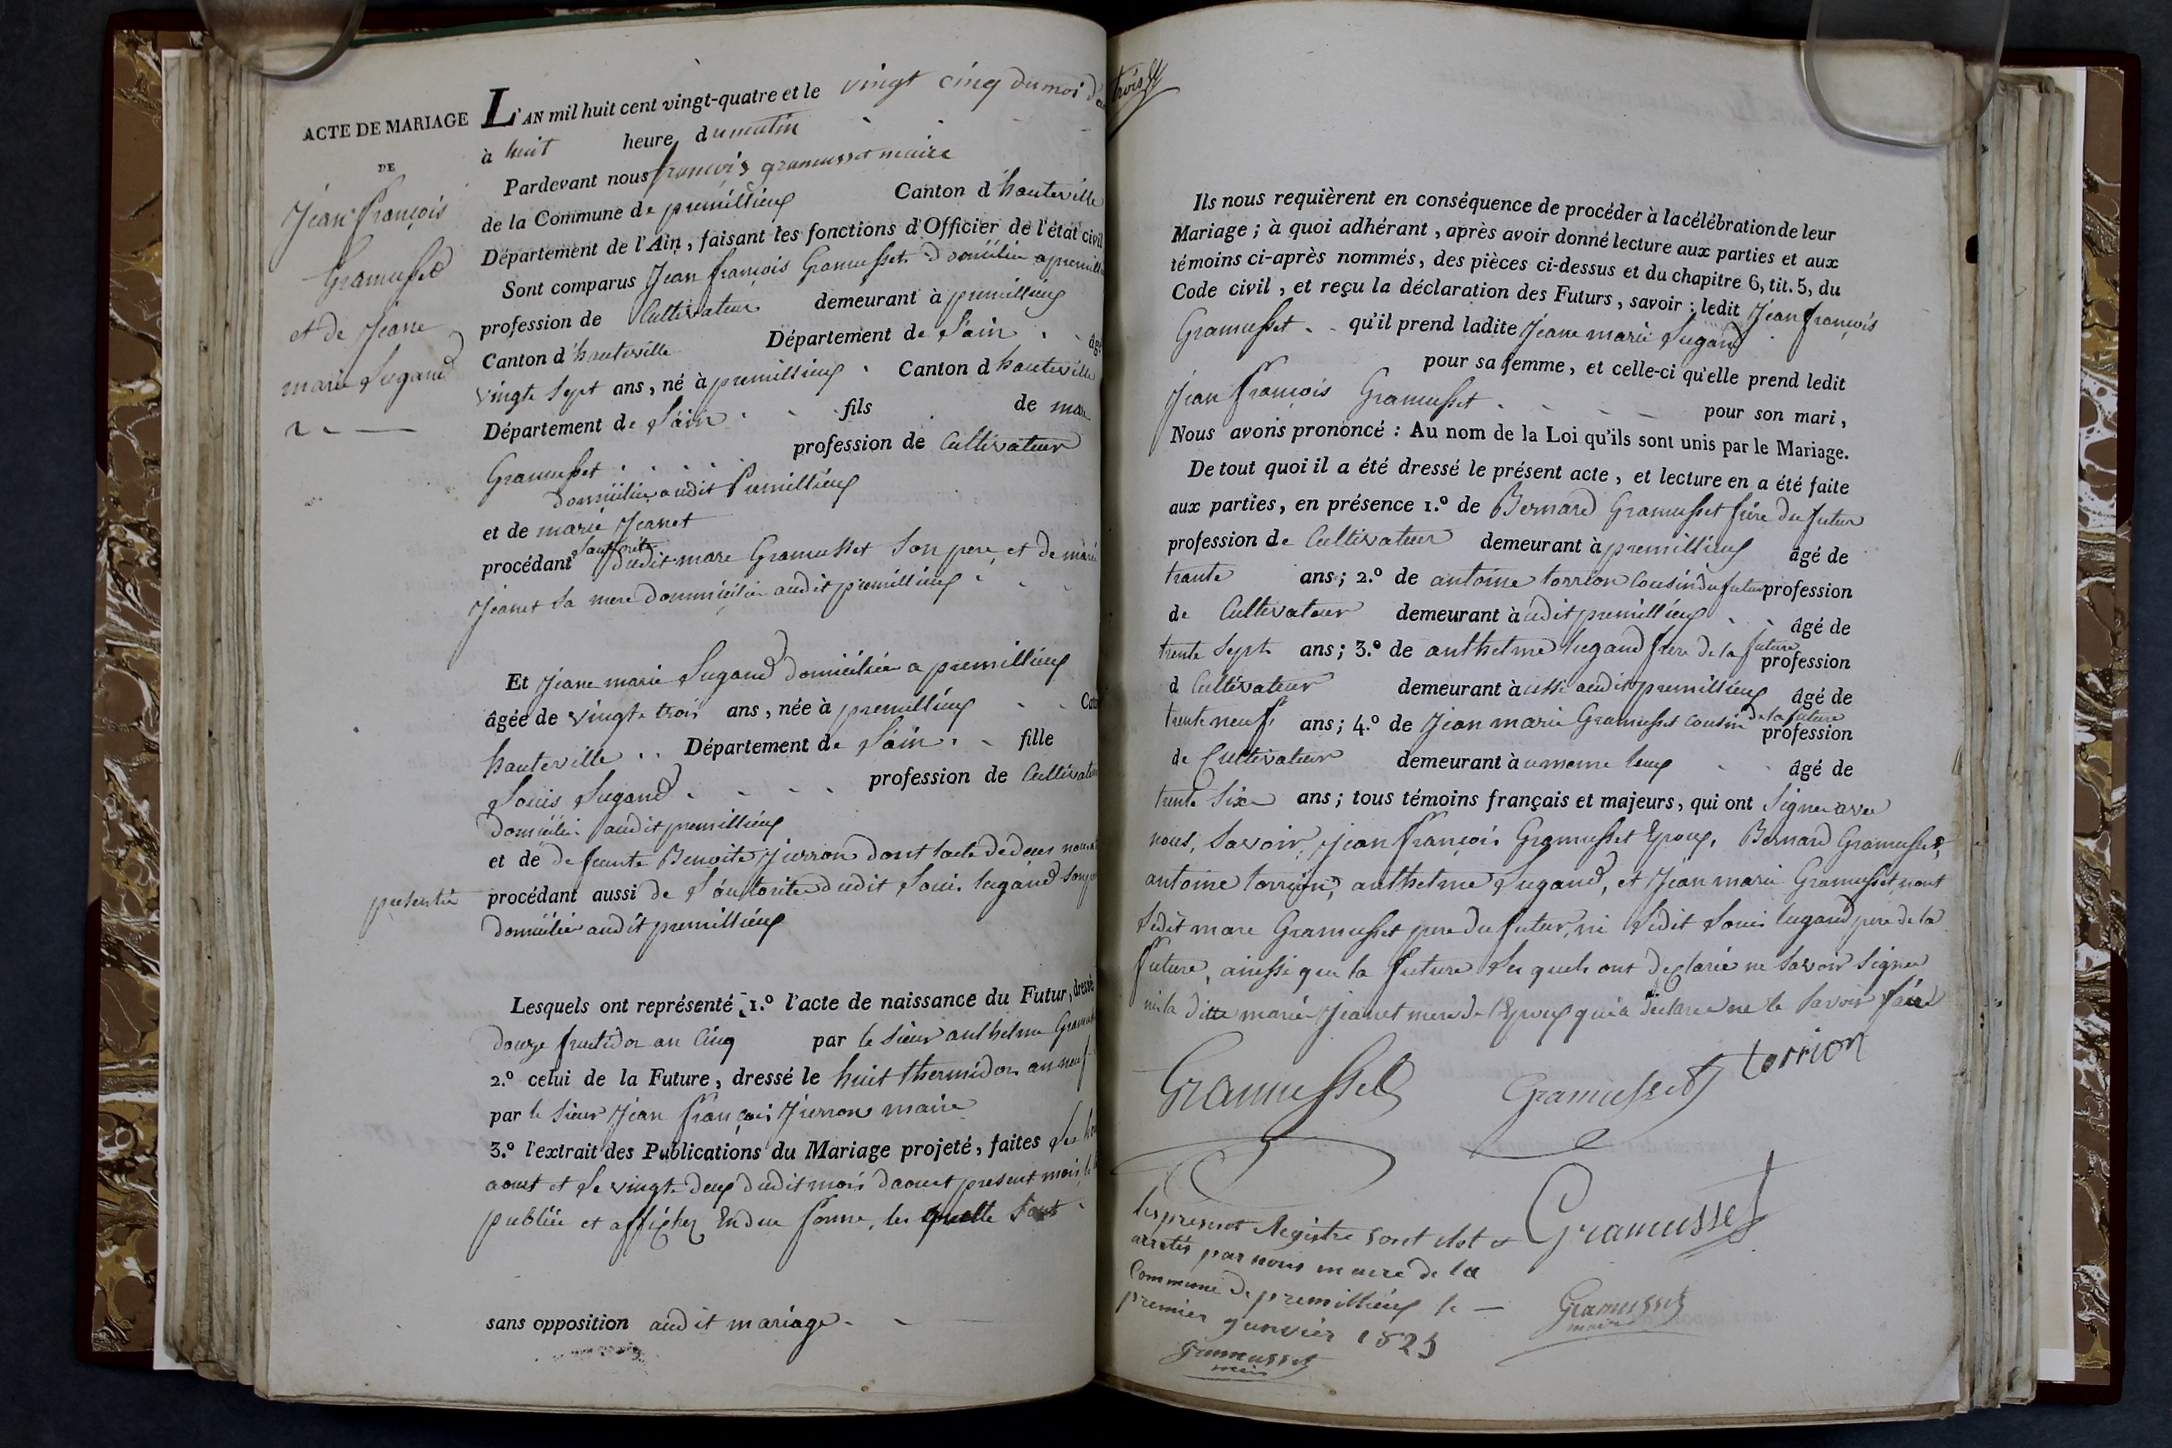 ACTE DE MARIAGE
DE
Jean françois
Gramusset
et de Jeane
marie Lugand
L'AN mil huit cent vingt-quatre et le vingt cinq du moi
à huit heure du matin
Pardevant nous françois gramusset maire
de la Commune de premillieu Canton d'hauteville
Département de l'Ain, faisant les fonctions d'Officier de l'état civil
Sont comparus Jean françois Gramusset domicilie a premilli
profession de Cultivateur demeurant à premillieu
Canton d'hauteville Département de L'ain âgé
vingt sept ans, né à premillieu Canton d hauteville
Département de L'ain fils de marc
Gramusset profession de Cultivateur
domicilie audit Premillieu
et de marie Jeanet
procédant
L'autorité
dudit marc Gramusset son pere et de marie
Jeanet sa mere dommicilie audit premillieu
Et Jeane marie Lugand domiciliée a premillieu
âgée de vingt trois ans, née à premillieu Cant
hauteville Département de L'ain fille
Louis Lugand profession de Cultivateu
domicilie audit premillieu
et de defeunte Benoite Jierron dont lacte dedeces nous a
presentée
procédant aussi de L'autorite dudit Louis lugand son
domicilie audit premillieu
Lesquels ont représenté 1.º l'acte de naissance du Futur, dressé
douze fructidor an Cinq par le sieur anthelme Gramus
2.º celui de la Future, dressé le huit thermidor an neuf
par le sieur Jean françois Jierron maire
3.º l'extrait des Publications du Mariage projeté, faites Les
aout et Le vingt deux dudit mois daout present mois
publiée et affichez Endue forme, les quelle sont
sans opposition audit mariage
trois
Ils nous requièrent en conséquence de procéder à la célébration de leur
Mariage; à quoi adhérant, après avoir donné lecture aux parties et aux
témoins ci-après nommés, des pièces ci-dessus et du chapitre 6, tit. 5, du
Code civil, et reçu la déclaration des Futurs, savoir: ledit Jean françois
Gramusset qu'il prend ladite Jeane marie Lugand
pour sa femme, et celle-ci qu'elle prend ledit
Jean françois Gramusset pour son mari,
Nous avons prononcé: Au nom de la Loi qu'ils sont unis par le Mariage.
De tout quoi il a été dressé le présent acte, et lecture en a été faite
aux parties, en présence 1.º de Bernard Gramusset frére du futur
profession de Cultivateur demeurant à premillieu âgé de
trante ans; 2.º de antoine torrion Cousin du futur profession
de Cultivateur demeurant à udit premillieu âgé de
trente Sept ans; 3.º de anthelme lugand frére de la future profession
d Cultivateur demeurant à ussi audit premillieu âgé de
trente neuf ans; 4.º de Jean marie Gramusset cousin de la future profession
de Cultivateur demeurant à u meme lieux âgé de
trente Six ans; tous témoins français et majeurs, qui ont Signer avec
nous, Savoir, Jean françois Gramusset Epoux, Bernard Gramusset,
antoine torrion, anthelme Lugand, et Jean marie Gramusset, nont
Ledit marc Gramusset pere du futur, ni Ledit Louis lugand pere de la
future, ainssi que la future Les quels ont declarée ne savoir signer
ni la ditte marie Jeanet mere de l'Epoux qui a déclaré ne le Savoir faire
Gramusset
Gramusset
torrion
Gramusset
les present Registre sont clot et
arretés par nous maire de la
Commune de premillieu le
premier janvier 1825
Gramusset
maire
Gramusset
maire